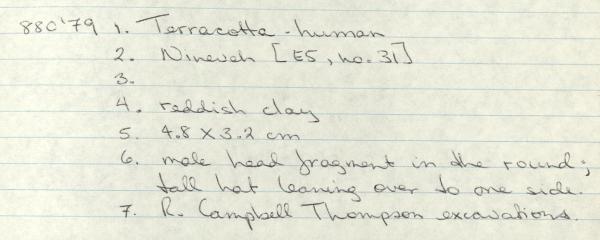 880'79 1. Terracotta - human
2. Nineveh [E5, no. 31]
3.
4. reddish clay
5. 4.8 X 3.2 cm
6. male head fragment in the round;
tall hat leaning over to one side.
7. R. Campbell Thompson excavations.